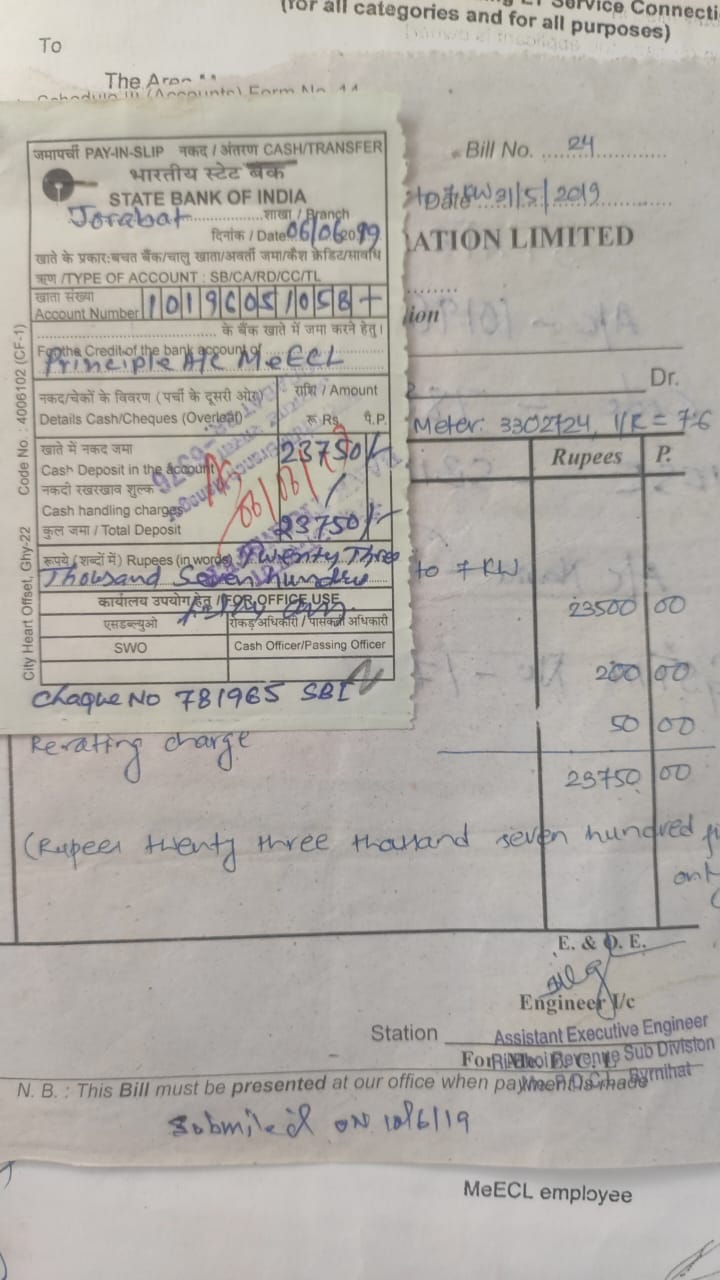 Service Connecti
(for all categories and for all purposes)
To
The Area
Schedule III (Accounts) Form No. 11
Bill No. 24
Date 21/5/2019
ATION LIMITED
ion
Dr.
Meter: 3302724, I/R = 7.6
Rupees P.
to 7 KW
23500 00
200 00
50 00
Rerating charge
23750 00
(Rupees twenty three thousand seven hundred
only
E. & O. E.
Engineer I/c
Station
Assistant Executive Engineer
Revenue Sub Division
Byrnihat
N. B. : This Bill must be presented at our office when payment is made
Submited on 10/6/19
MeECL employee
जमापर्ची PAY-IN-SLIP नकद / अंतरण CASH/TRANSFER
भारतीय स्टेट बैंक
STATE BANK OF INDIA
Jorabat शाखा / Branch
दिनांक / Date 06/06/2019
खाते के प्रकार:बचत बैंक/चालू खाता/आवर्ती जमा/कैश क्रेडिट/सावधि
ऋण /TYPE OF ACCOUNT : SB/CA/RD/CC/TL
खाता संख्या
Account Number
के बैंक खाते में जमा करने हेतु।
For the Credit of the bank account of
Principle A/c MeECL
नकद/चेकों के विवरण (पर्ची के दूसरी ओर) राशि / Amount
Details Cash/Cheques (Overleaf) रू Rs. पै.P.
खाते में नकद जमा
Cash Deposit in the account 23750/-
नकदी रखरखाव शुल्क
Cash handling charges
कुल जमा / Total Deposit 23750/-
06/06/19
रूपये (शब्दों में) Rupees (in words) Twenty Three
Thousand Seven hundred
कार्यालय उपयोग हेतु / FOR OFFICE USE
एसडब्ल्युओ रोकड़ अधिकारी / पासकर्ता अधिकारी
SWO Cash Officer/Passing Officer
Chaque No 781965 SBI
City Heart Offset, Ghy-22 Code No. : 4006102 (CF-1)